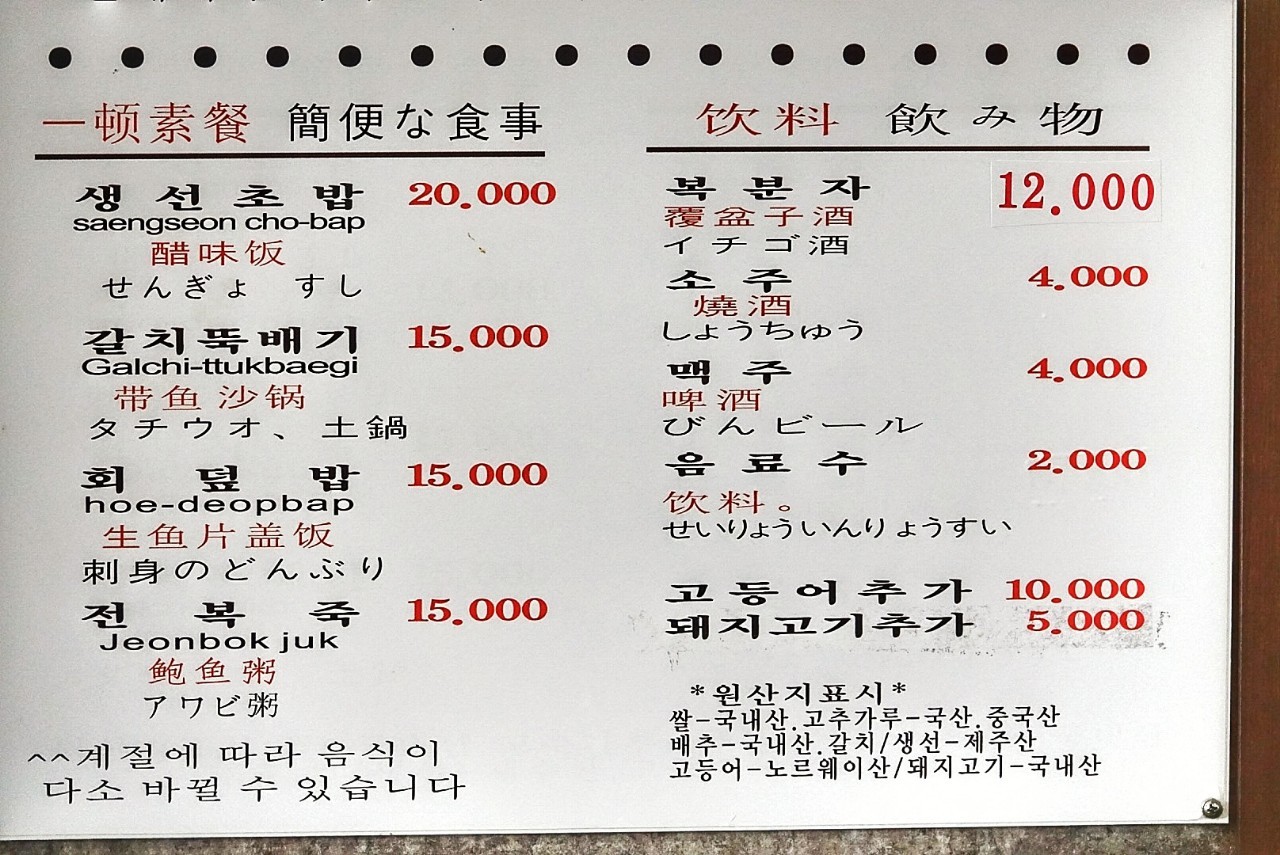 一顿素餐 簡便な食事
생선초밥 20.000
saengseon cho-bap
醋味饭
せんぎょ すし
갈치뚝배기 15.000
Galchi-ttukbaegi
带鱼 沙锅
タチウオ、土鍋
회덮밥 15.000
hoe-deopbap
生鱼片盖饭
刺身のどんぶり
전복죽 15.000
Jeonbok juk
鲍鱼粥
アワビ粥
^^계절에 따라 음식이
다소 바뀔 수 있습니다
饮料 飲み物
복분자 12.000
覆盆子酒
イチゴ酒
소주 4.000
燒酒
しょうちゆう
맥주 4.000
啤酒
びんビール
음료수 2.000
饮料。
せいりょういんりょうすい
고등어추가 10.000
돼지고기추가 5.000
*원산지표시*
쌀-국내산.고추가루-국산.중국산
배추-국내산.갈치/생선-제주산
고등어-노르웨이산/돼지고기-국내산